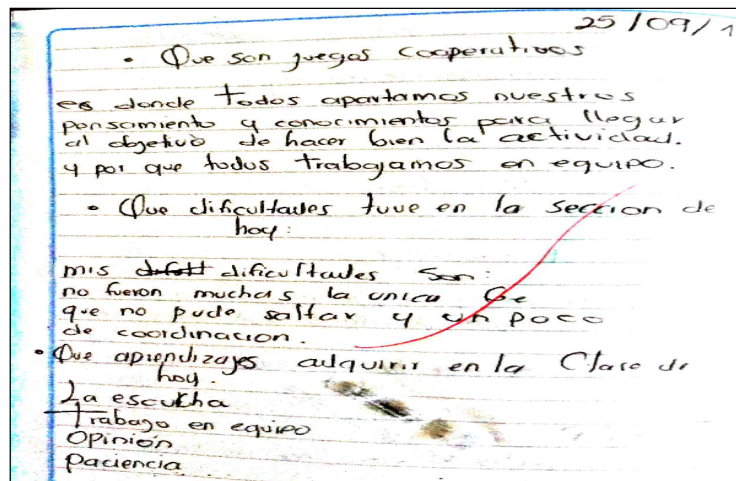 25/09/1
• Que son juegos cooperativos
es donde Todos apartamos nuestros
pensamiento y conocimientos para llegar
al objetivo de hacer bien la actividad.
y por que todos trabajamos en equipo.
• Que dificultades tuve en la seccion de
hoy:
mis dificultades son:
no fueron muchas la unica
que no pude saltar y un poco
de coordinacion.
• Que aprendizajes adquirir en la Clase de
hoy.
La escucha
Trabajo en equipo
Opinión
paciencia